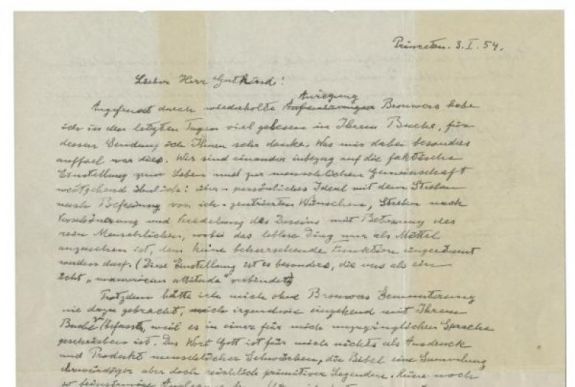 Princeton. 3. I. 54.
Lieber Herr Gutkind!
Anregung
Angefeuert durch wiederholte Brouwers habe
ich in den letzten Tagen viel gelesen in Ihrem Buche, für
dessen Sendung ich Ihnen sehr danke. Was mir dabei besonders
auffiel war dies. Wir sind einander inbezug auf die faktische
Einstellung zum Leben und zur menschlichen Gemeinschaft
weitgehend ähnlich: über-persönliches Ideal mit dem Streben
nach Befreiung von ich-zentrierten Wünschen, Streben nach
Verschönerung und Veredelung des Daseins mit Betonung des
rein Menschlichen, wobei das leblose Ding nur als Mittel
anzusehen ist, dem keine beherrschende Funktion eingeräumt
werden darf. (Diese Einstellung ist es besonders, die uns als ein
echt "unamerican attitude" verbindet)
Trotzdem hätte ich mich ohne Brouwers Ermunterung
nie dazu gebracht, mich irgendwie eingehend mit Ihrem
Buche zu befassen, weil es in einer für mich unzugänglichen Sprache
geschrieben ist. Das Wort Gott ist für mich nichts als Ausdruck
und Produkt menschlicher Schwächen, die Bibel eine Sammlung
ehrwürdiger aber doch reichlich primitiver Legenden. Keine noch
so feinsinnige Auslegung